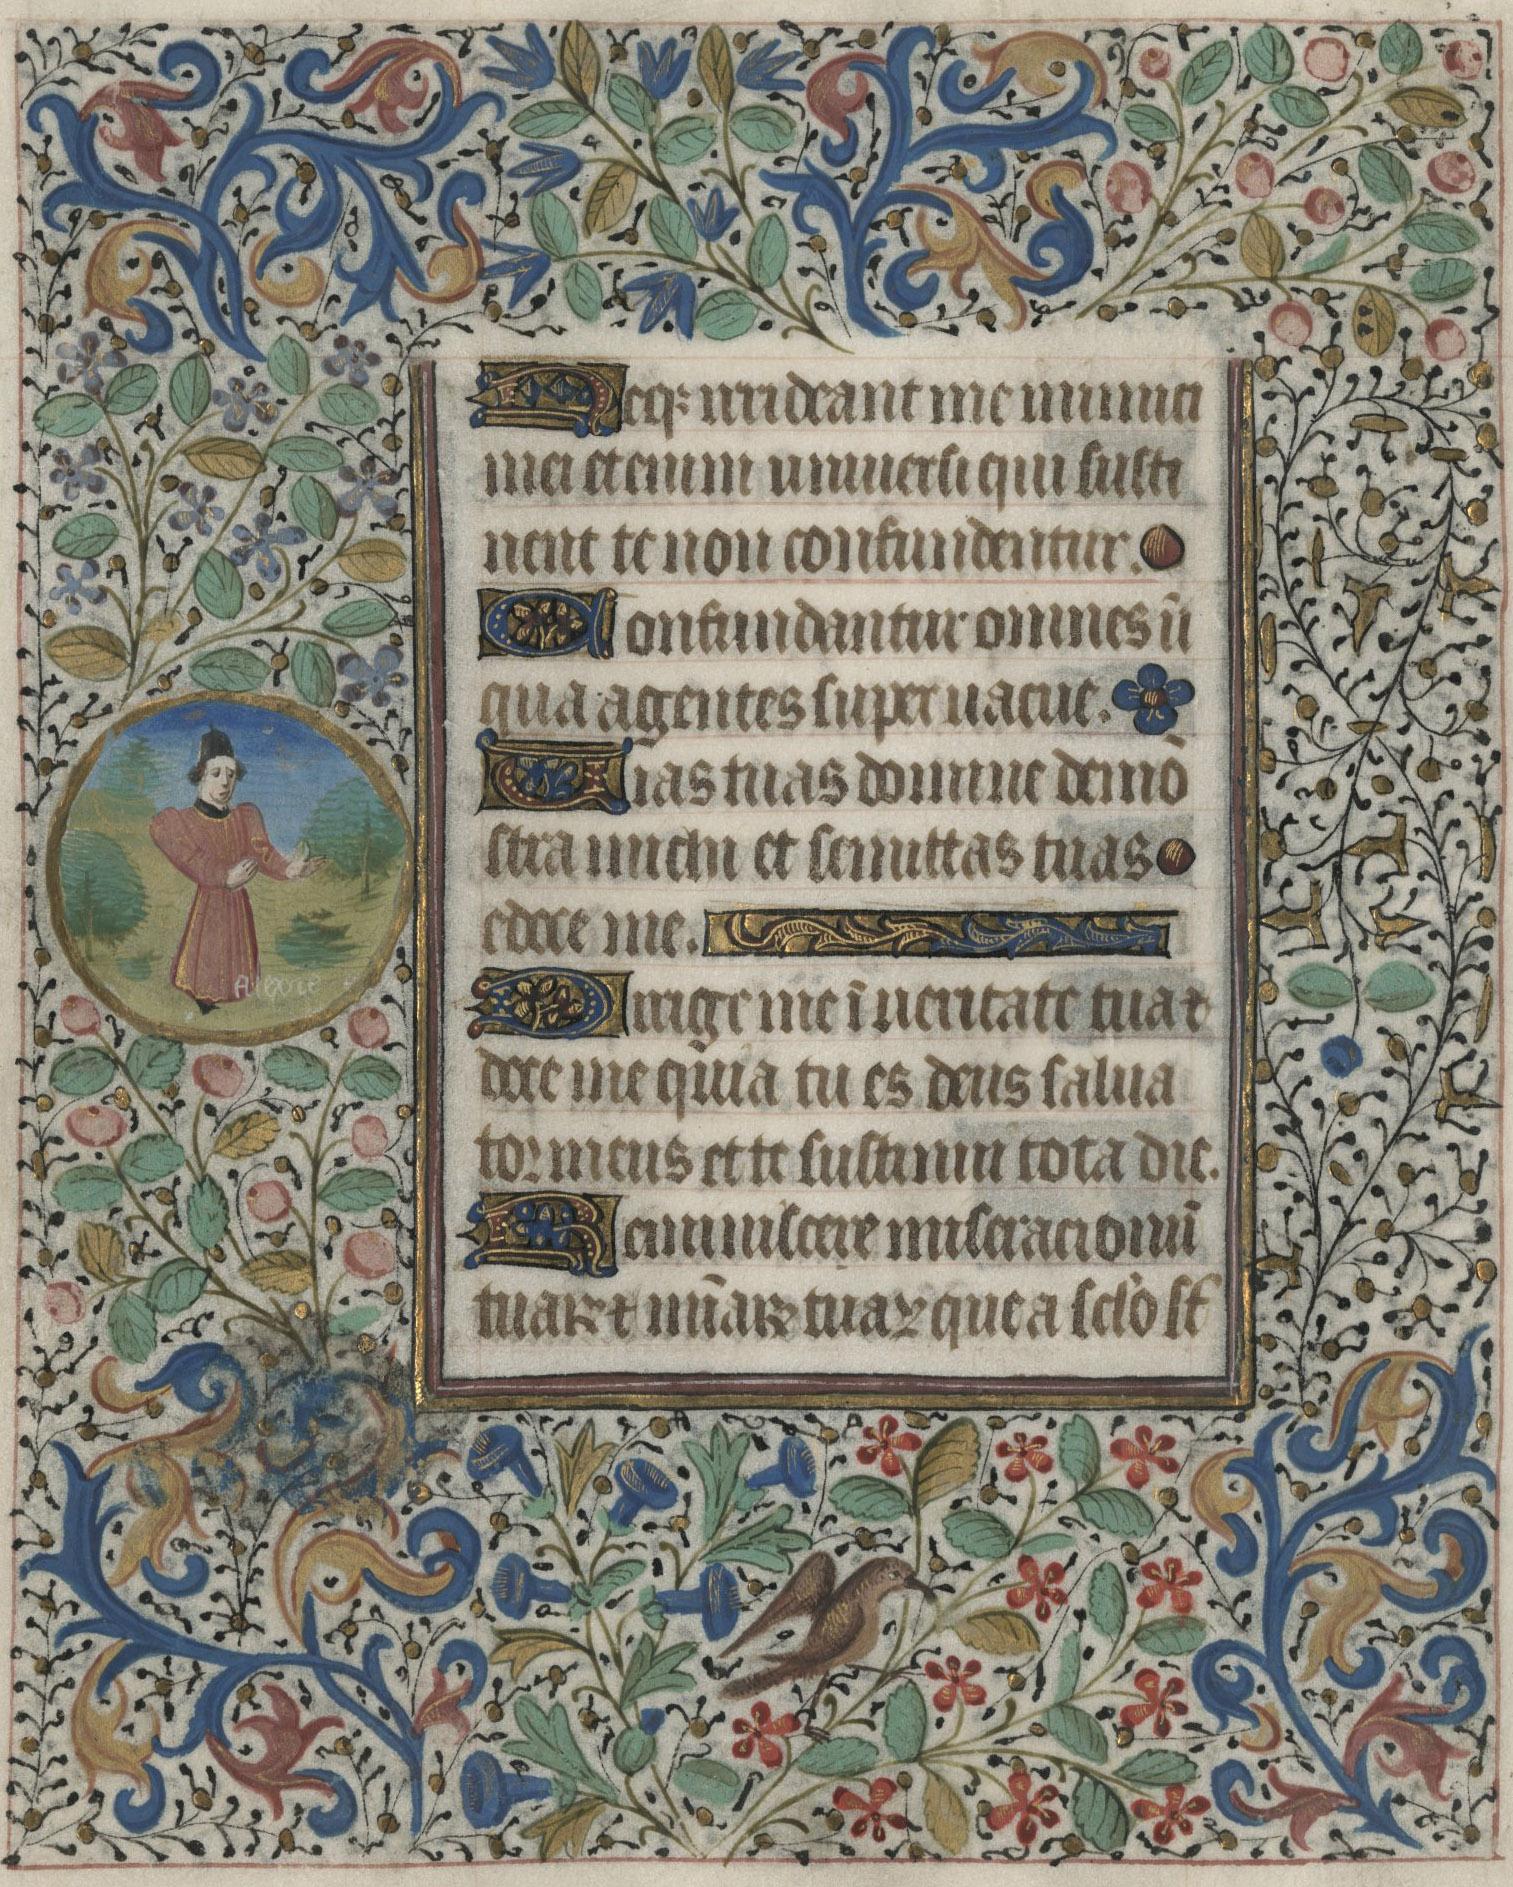 Neqȝ irrideant me inimici
mei etenim universi qui susti
nent te non confundentur.
Confundantur omnes ini
qua agentes supervacue.
Vias tuas domine demō
stra michi et semittas tuas
edoce me.
Dirige me ī veritate tua ⁊
doce me quia tu es deus salva
tor meus et te sustinui tota die.
Reminiscere miseracionū
tuaꝝ ⁊ mīaꝝ tuaꝝ que a sclo st̄